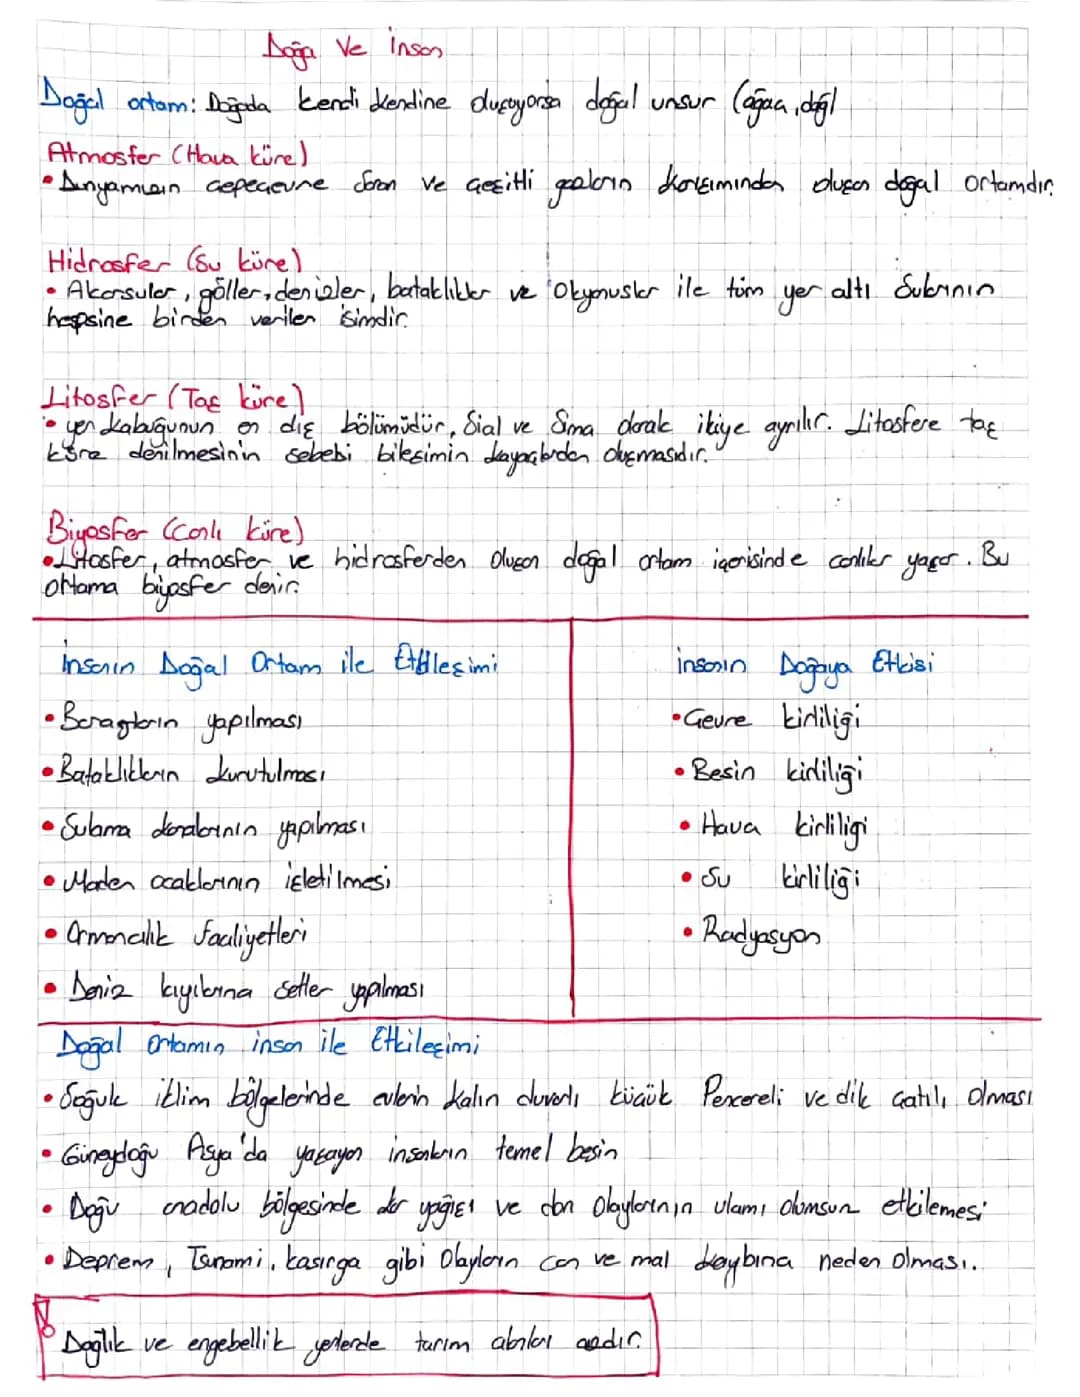 Doğa ve İnsan
Doğal ortam: Doğada kendi kendine oluşuyorsa doğal unsur (ağaç, dağ)
Atmosfer (Hava küre)
• Dünyamızın çepeçevre saran ve çeşitli gazların karışımından oluşan doğal ortamdır.
Hidrosfer (Su küre)
• Akarsular, göller, denizler, bataklıklar ve Okyanuslar ile tüm yer altı Sularının
hepsine birden verilen isimdir.
Litosfer (Taş küre)
• yer kabuğunun en dış bölümüdür, Sial ve Sima olarak ikiye ayrılır. Litosfere taş
küre denilmesinin sebebi bileşimin kayaçlardan oluşmasıdır.
Biyosfer (Canlı küre)
• Litosfer, atmosfer ve hidrosferden oluşan doğal ortam içerisinde canlılar yaşar. Bu
ortama biyosfer denir.
İnsanın Doğal Ortam ile Etkileşimi
• Barajların yapılması
• Bataklıkların kurutulması
• Sulama kanalarının yapılması
• Maden ocaklarının işletilmesi
• Ormancılık faaliyetleri
• Deniz kıyılarına setler yapılması
insanın Doğaya Etkisi
• Çevre kirliliği
• Besin kirliliği
• Hava kirliligi
• Su kirliliği
• Radyasyon
Doğal Ortamın insan ile Etkileşimi
• Soğuk iklim bölgelerinde evlerin kalın duvarlı küçük Pencereli ve dik çatılı olması
• Güneydoğu Asya'da yaşayan insanların temel besin
• Doğu anadolu bölgesinde kar yağışı ve don Olaylarının ulamı olumsun etkilemesi
• Deprem, Tsunami, kasırga gibi Olayların can ve mal kaybına neden olması..
Dağlık ve engebellik yerlerde tarım alanları azdır.